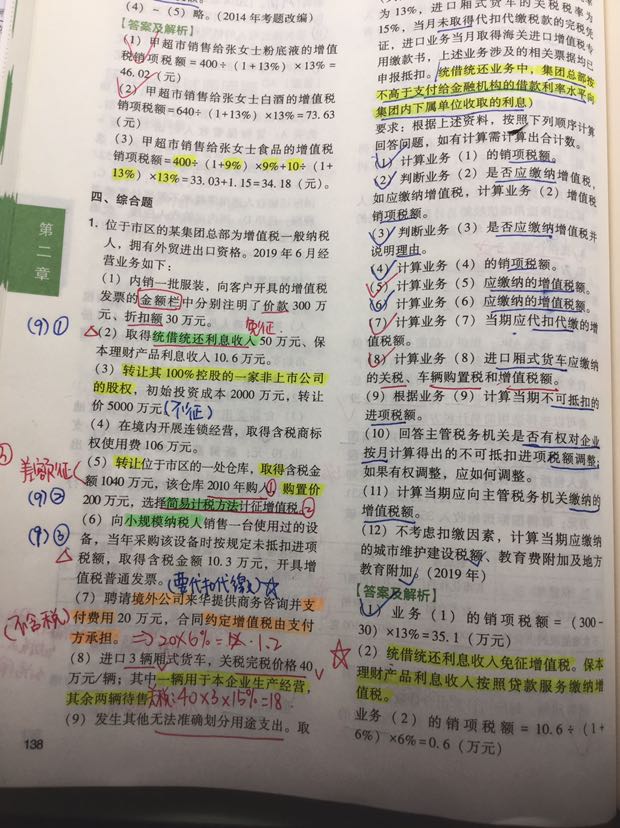 (4)-(5)略。(2014年考题改编)
【答案及解析】
(1)甲超市销售给张女士粉底液的增值
税销项税额=400÷(1+13%)×13%=
46.02(元)
(2)甲超市销售给张女士白酒的增值税
销项税额=640÷(1+13%)×13%=73.63
(元)
(3)甲超市销售给张女士食品的增值税
销项税额=400÷(1+9%)×9%+10÷(1+
13%)×13%=33.03+1.15=34.18(元)。
四、综合题
1. 位于市区的某集团总部为增值税一般纳税
人,拥有外贸进出口资格。2019年6月经
营业务如下:
(1)内销一批服装,向客户开具的增值税
发票的金额栏中分别注明了价款300万
元、折扣额30万元。
免征
(9)①
(2)取得统借统还利息收入50万元、保
本理财产品利息收入10.6万元。
(3)转让其100%控股的一家非上市公司
的股权,初始投资成本2000万元,转让
价5000万元。
(不征)
(4)在境内开展连锁经营,取得含税商标
权使用费106万元。
差额征
(5)转让位于市区的一处仓库,取得含税金
额1040万元,该仓库2010年购入,购置价
①
(9)②
200万元,选择简易计税方法计征增值税。
②
(9)③
(6)向小规模纳税人销售一台使用过的设
备,当年采购该设备时按规定未抵扣进项
税额,取得含税金额10.3万元,开具增
值税普通发票。
(要代扣代缴)☆
(7)聘请境外公司来华提供商务咨询并支
(不含税)
付费用20万元,合同约定增值税由支付
方承担。
⇒20×6%=1.2
(8)进口3辆厢式货车,关税完税价格40
万元/辆;其中一辆用于本企业生产经营,
其余两辆待售。
关税:40×3×15%=18
(9)发生其他无法准确划分用途支出。取
138
第二章
为13%,进口厢式货车的关税税率为
15%,当月未取得代扣代缴税款的完税凭
证,进口业务当月取得海关进口增值税专
用缴款书,上述业务涉及的相关票据均已
申报抵扣。统借统还业务中,集团总部按
不高于支付给金融机构的借款利率水平向
集团内下属单位收取的利息)
要求:根据上述资料,按照下列顺序计算
回答问题,如有计算需计算出合计数。
(1)计算业务(1)的销项税额。
(2)判断业务(2)是否应缴纳增值税,
如应缴纳增值税,计算业务(2)增值税
销项税额。
(3)判断业务(3)是否应缴纳增值税并
说明理由。
(4)计算业务(4)的销项税额。
(5)计算业务(5)应缴纳的增值税额。
(6)计算业务(6)应缴纳的增值税额。
(7)计算业务(7)当期应代扣代缴的增
值税额。
(8)计算业务(8)进口厢式货车应缴纳
的关税、车辆购置税和增值税额。
(9)根据业务(9)计算当期不可抵扣的
进项税额。
(10)回答主管税务机关是否有权对企业
按月计算得出的不可抵扣进项税额调整;
如果有权调整,应如何调整。
(11)计算当期应向主管税务机关缴纳的
增值税额。
(12)不考虑扣缴因素,计算当期应缴纳
的城市维护建设税额、教育费附加及地方
教育附加。(2019年)
【答案及解析】
(1)业务(1)的销项税额=(300-
30)×13%=35.1(万元)
(2)统借统还利息收入免征增值税。保本
理财产品利息收入按照贷款服务缴纳增
值税。
业务(2)的销项税额=10.6÷(1+
6%)×6%=0.6(万元)